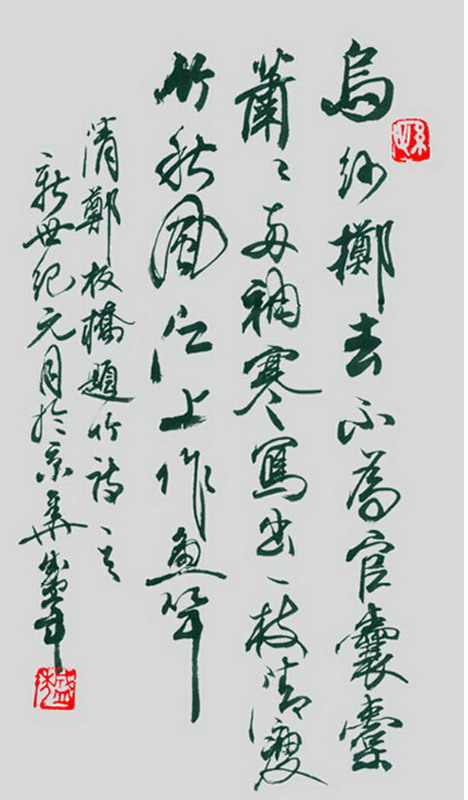 烏紗擲去不為官囊橐
蕭々兩袖寒寫出一枝清瘦
竹秋風江上作魚竿
清鄭板橋題竹詩
新世紀元月於京華